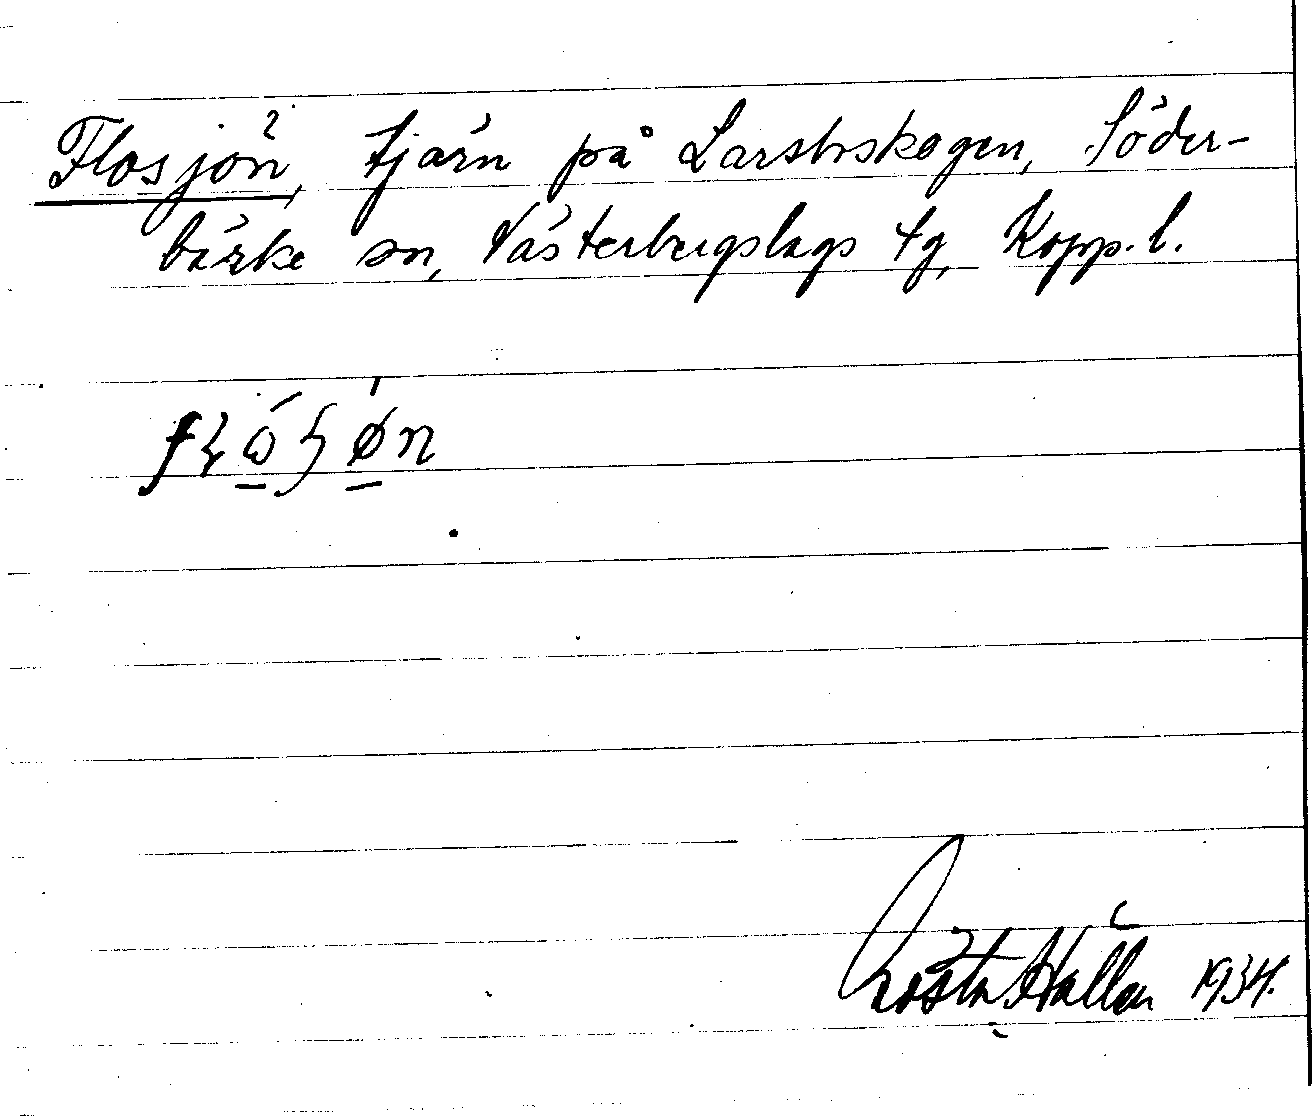 Flosjön, tjärn på Larsbskogen, Söder-
bärke sn, Västerbergslags tg, Kopp. l.
Gösta Hallen 1934.